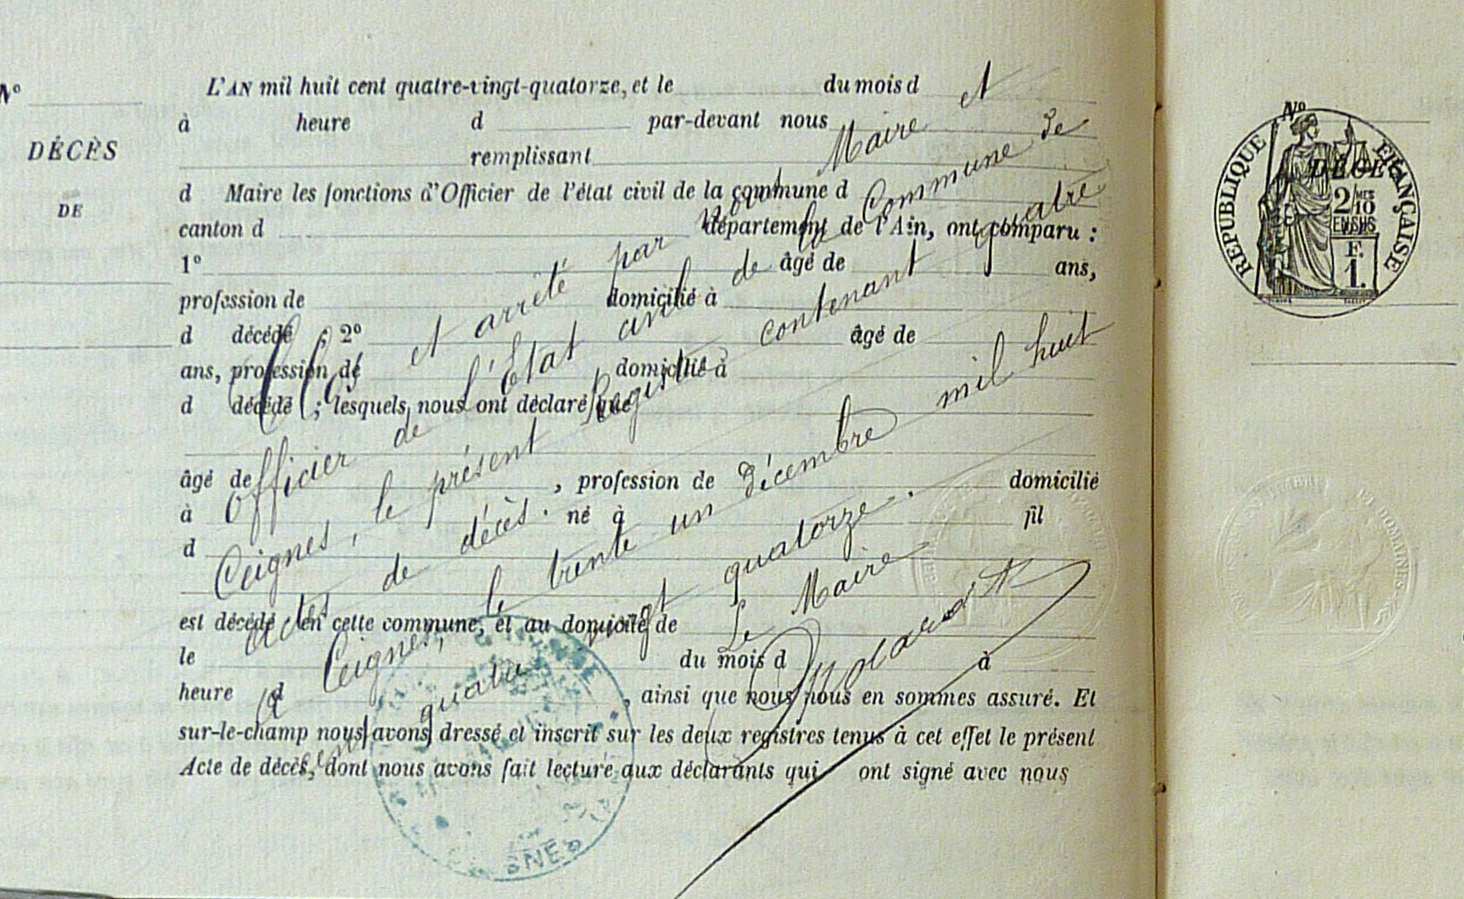 N°
DÉCÈS
DE
L'AN mil huit cent quatre-vingt-quatorze, et le du mois d
à heure d par-devant nous
remplissant
d Maire les fonctions d'Officier de l'état civil de la commune d
canton d département de l'Ain, ont comparu :
1° âgé de ans,
profession de domicilié à
d décédé ; 2° âgé de
ans, profession de domicilié à
d décédé ; lesquels nous ont déclaré que
âgé de , profession de domicilié
à né à fil
d
est décédé en cette commune, et au domicile de
le du mois d à
heure d , ainsi que nous nous en sommes assuré. Et
sur-le-champ nous avons dressé et inscrit sur les deux registres tenus à cet effet le présent
Acte de décès, dont nous avons fait lecture aux déclarants qui ont signé avec nous
Clos et arrêté par nous, Maire et
Officier de l'État civil de la Commune de
Ceignes, le présent Registre contenant quatre
actes de décès.
Ceignes, le trente un décembre mil huit
cent quatre vingt quatorze.
Le Maire
N°
RÉPUBLIQUE FRANÇAISE
2/10
EN SUS
F.
1.
GNES